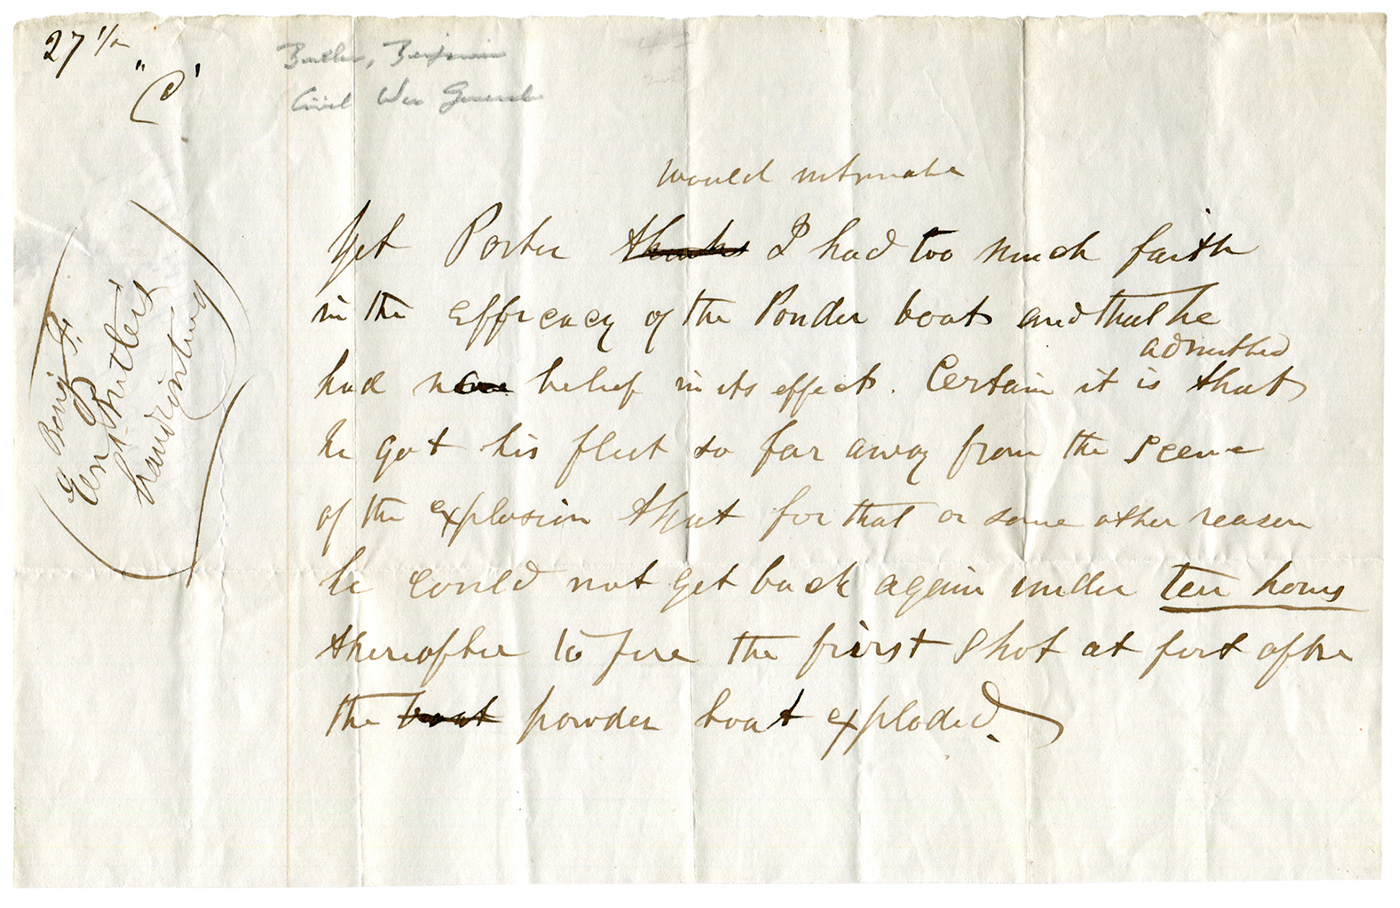 27 1/2
" C "
Butler, Benjamin
Civil War General
would intimate
Yet Porter thinks I had too much faith
in the efficacy of the Ponder boats and that he
admitted
had none belief in its effects. Certain it is that
he got his fleet so far away from the scene
of the explosion that for that or some other reason
he could not get back again under ten hours
thereafter to fire the first shot at fort after
the boat powder boat exploded.
Benj. F.
Gen Butler's
handwriting